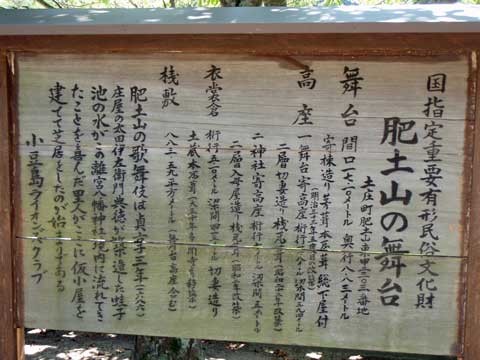 国指定重要有形民俗文化財
肥土山の舞台
土庄町肥土山甲二三〇三番地
舞台 間口一七・一〇メートル 奥行八・八三メートル
寄棟造り茅葺本瓦葺総下屋付
高座 一舞台寄高座桁行
二層切妻造り桟瓦葺
二神社寄高座桁行
二層入母屋造り桟瓦葺
衣裳倉 桁行五・一〇メートル 切妻造り
土蔵本瓦葺
桟敷 八八二・五九平方メートル(舞台高座含む)
肥土山の歌舞伎は貞享三年(一六八六)
庄屋の太田伊左衛門典徳が築造した蛙子
池の水がこの離宮八幡神社境内に流れてき
たことを喜んだ里人がここに仮小屋を
建てて芝居をしたのが始りである
小豆島ライオンズクラブ